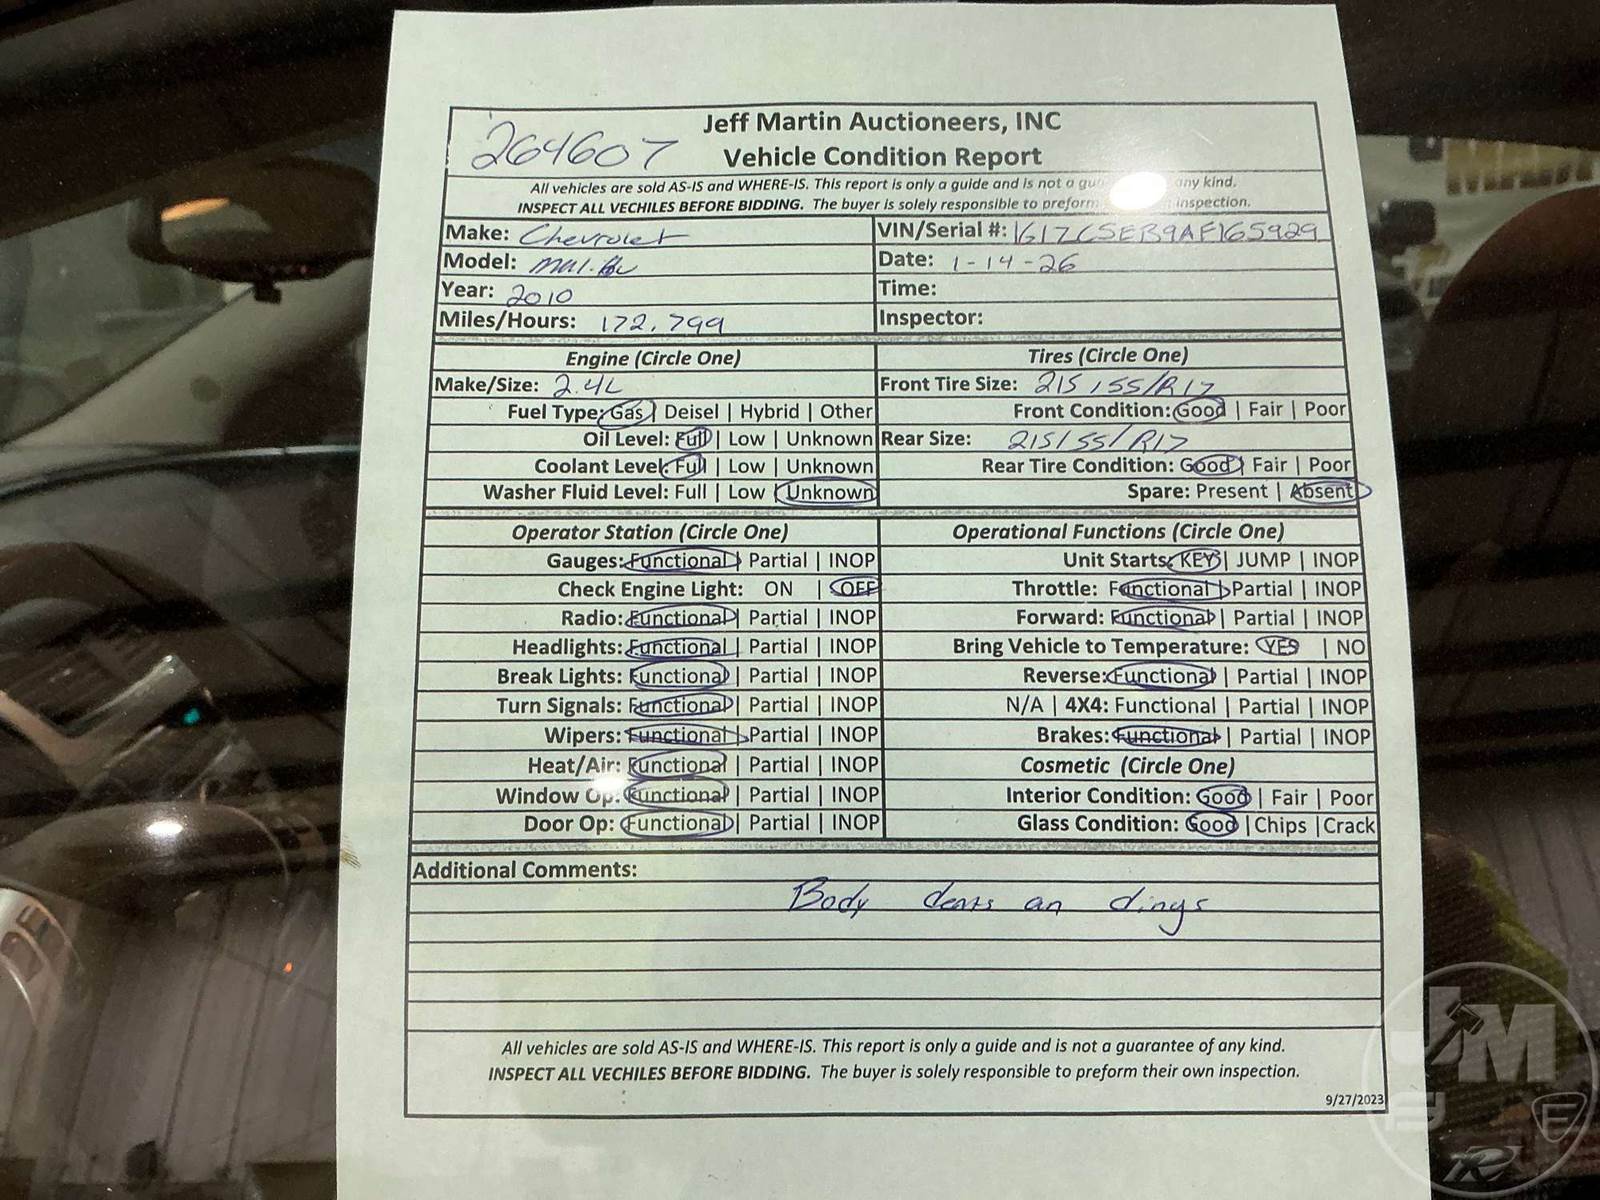 264607
Jeff Martin Auctioneers, INC
Vehicle Condition Report
All vehicles are sold AS-IS and WHERE-IS. This report is only a guide and is not a gu any kind.
INSPECT ALL VECHILES BEFORE BIDDING. The buyer is solely responsible to preform inspection.
Make: Chevrolet VIN/Serial #: 1G1ZC5EB9AF165929
Model: Malibu Date: 1-14-26
Year: 2010 Time:
Miles/Hours: 172,799 Inspector:
Engine (Circle One) Tires (Circle One)
Make/Size: 2.4L Front Tire Size: 215/55/R17
Fuel Type: Gas | Deisel | Hybrid | Other Front Condition: Good | Fair | Poor
Oil Level: Full | Low | Unknown Rear Size: 215/55/R17
Coolant Level: Full | Low | Unknown Rear Tire Condition: Good | Fair | Poor
Washer Fluid Level: Full | Low | Unknown Spare: Present | Absent
Operator Station (Circle One) Operational Functions (Circle One)
Gauges: Functional | Partial | INOP Unit Starts: KEY | JUMP | INOP
Check Engine Light: ON | OFF Throttle: Functional | Partial | INOP
Radio: Functional | Partial | INOP Forward: Functional | Partial | INOP
Headlights: Functional | Partial | INOP Bring Vehicle to Temperature: YES | NO
Break Lights: Functional | Partial | INOP Reverse: Functional | Partial | INOP
Turn Signals: Functional | Partial | INOP N/A | 4X4: Functional | Partial | INOP
Wipers: Functional | Partial | INOP Brakes: Functional | Partial | INOP
Heat/Air: Functional | Partial | INOP Cosmetic (Circle One)
Window Op: Functional | Partial | INOP Interior Condition: Good | Fair | Poor
Door Op: Functional | Partial | INOP Glass Condition: Good | Chips | Crack
Additional Comments:
Body dents an dings
All vehicles are sold AS-IS and WHERE-IS. This report is only a guide and is not a guarantee of any kind.
INSPECT ALL VECHILES BEFORE BIDDING. The buyer is solely responsible to preform their own inspection.
9/27/2023
JM